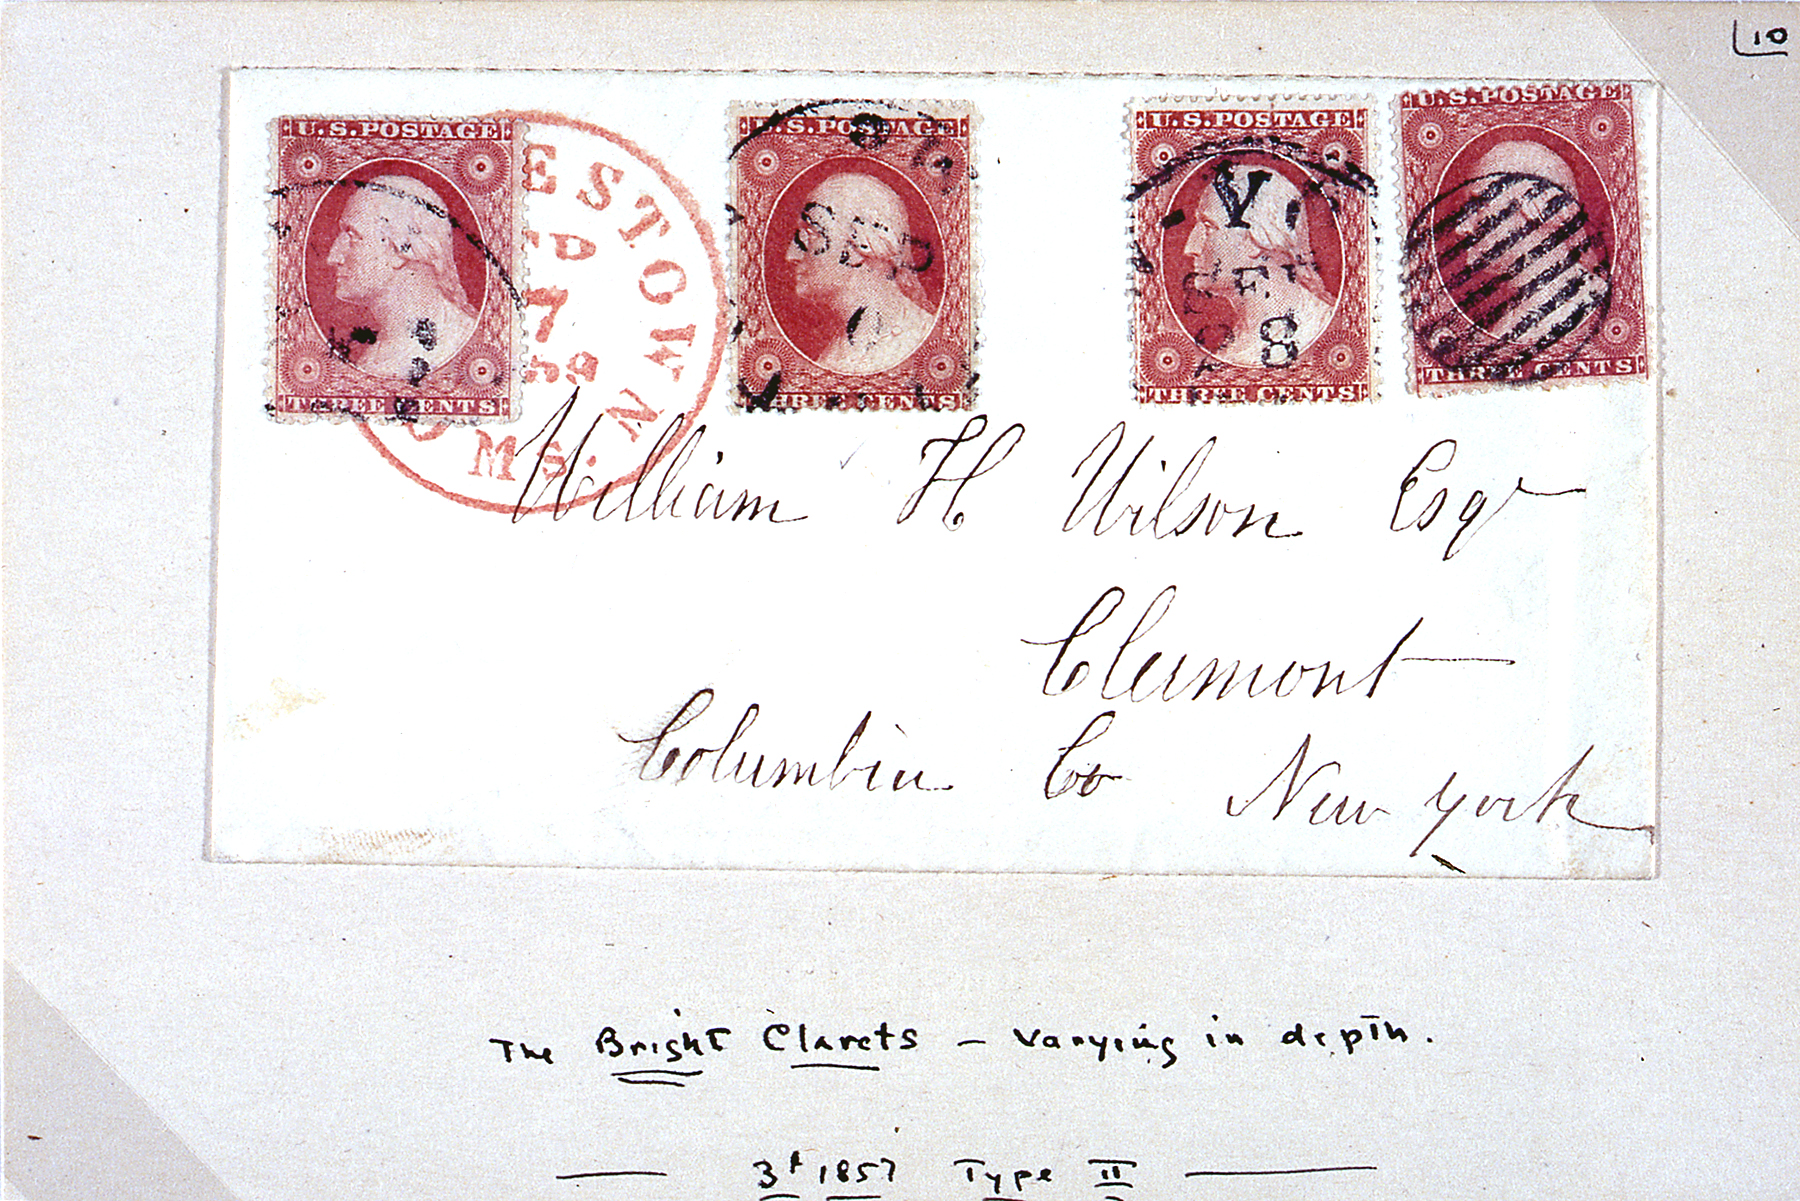 10
U.S.POSTAGE U.S.POSTAGE U.S.POSTAGE U.S.POSTAGE
ESTOWN
7
MS.
SEP
8
THREE CENTS THREE CENTS THREE CENTS THREE CENTS
William H Wilson Esqr
Clermont
Columbia Co New York
The Bright Clarets — varying in depth.
3¢ 1857 Type II